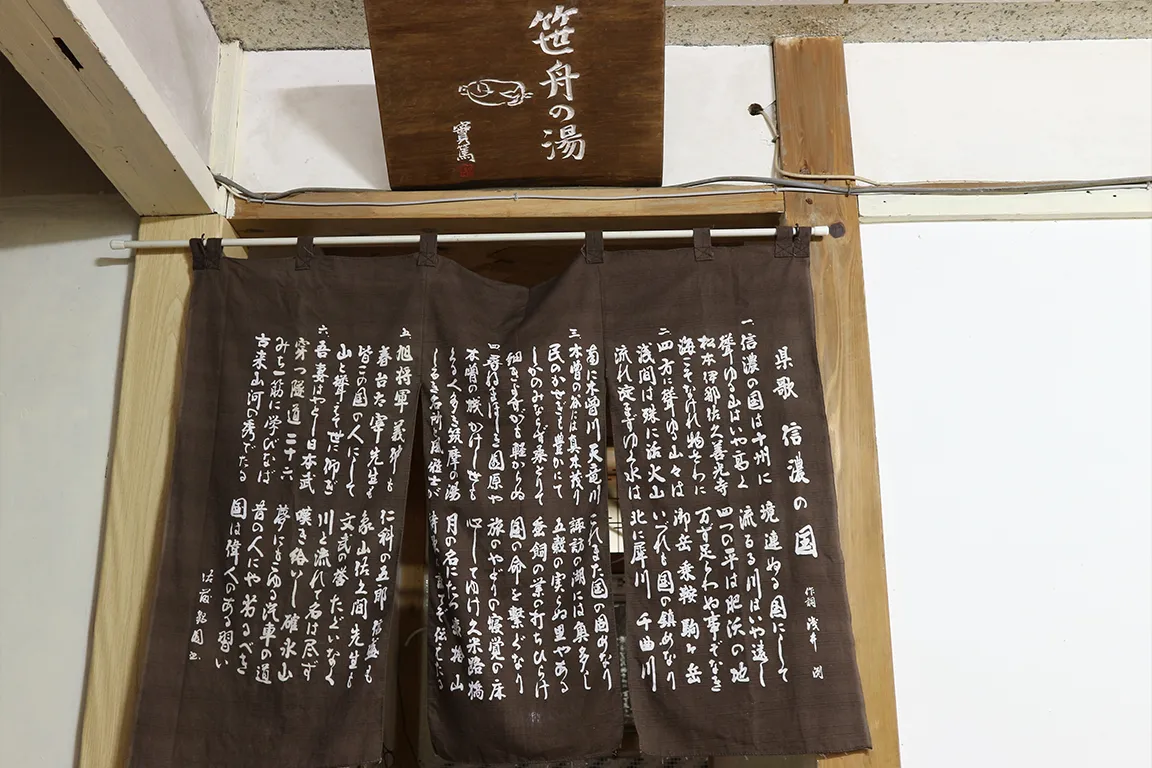 笹舟の湯
寶篤
県歌 信濃の国
作詞 浅井 洌
一 信濃の国は十州に 境連ぬる国にして
聳ゆる山はいや高く 流るる川はいや遠し
松本伊那佐久善光寺 四つの平は肥沃の地
海こそなけれ物さわに 万ず足らわぬ事ぞなき
二 四方に聳ゆる山々は 御岳 乗鞍 駒ヶ岳
浅間は殊に活火山 いづれも国の鎮めなり
流れ淀まずゆく水は 北に犀川 千曲川
南に木曽川 天竜川 これまた国の固めなり
三 木曽の谷には真木茂り 諏訪の湖には魚多し
民のかせぎも豊かにて 五穀の実らぬ里やある
しかのみならず桑とりて 蚕飼の業の打ちひらけ
細きよすがも軽からぬ 国の命を繋ぐなり
四 尋ねまほしき園原や 旅のやどりの寝覚の床
木曽の桟かけし世も 心してゆけ久米路橋
くる人多き筑摩の湯 月の名にたつ姨捨山
しるき名所と風雅士が
五 旭将軍義仲も 仁科の五郎信盛も
春台太宰先生も 象山佐久間先生も
皆この国の人にして 文武の誉たぐいなく
山と聳えて世に仰ぎ 川と流れて名は尽ず
六 吾妻はやとし日本武 嘆き給いし碓氷山
穿つ隧道二十六 夢にもこゆる汽車の道
みち一筋に学びなば 昔の人にや劣るべき
古来山河の秀でたる 国は偉人のある習い